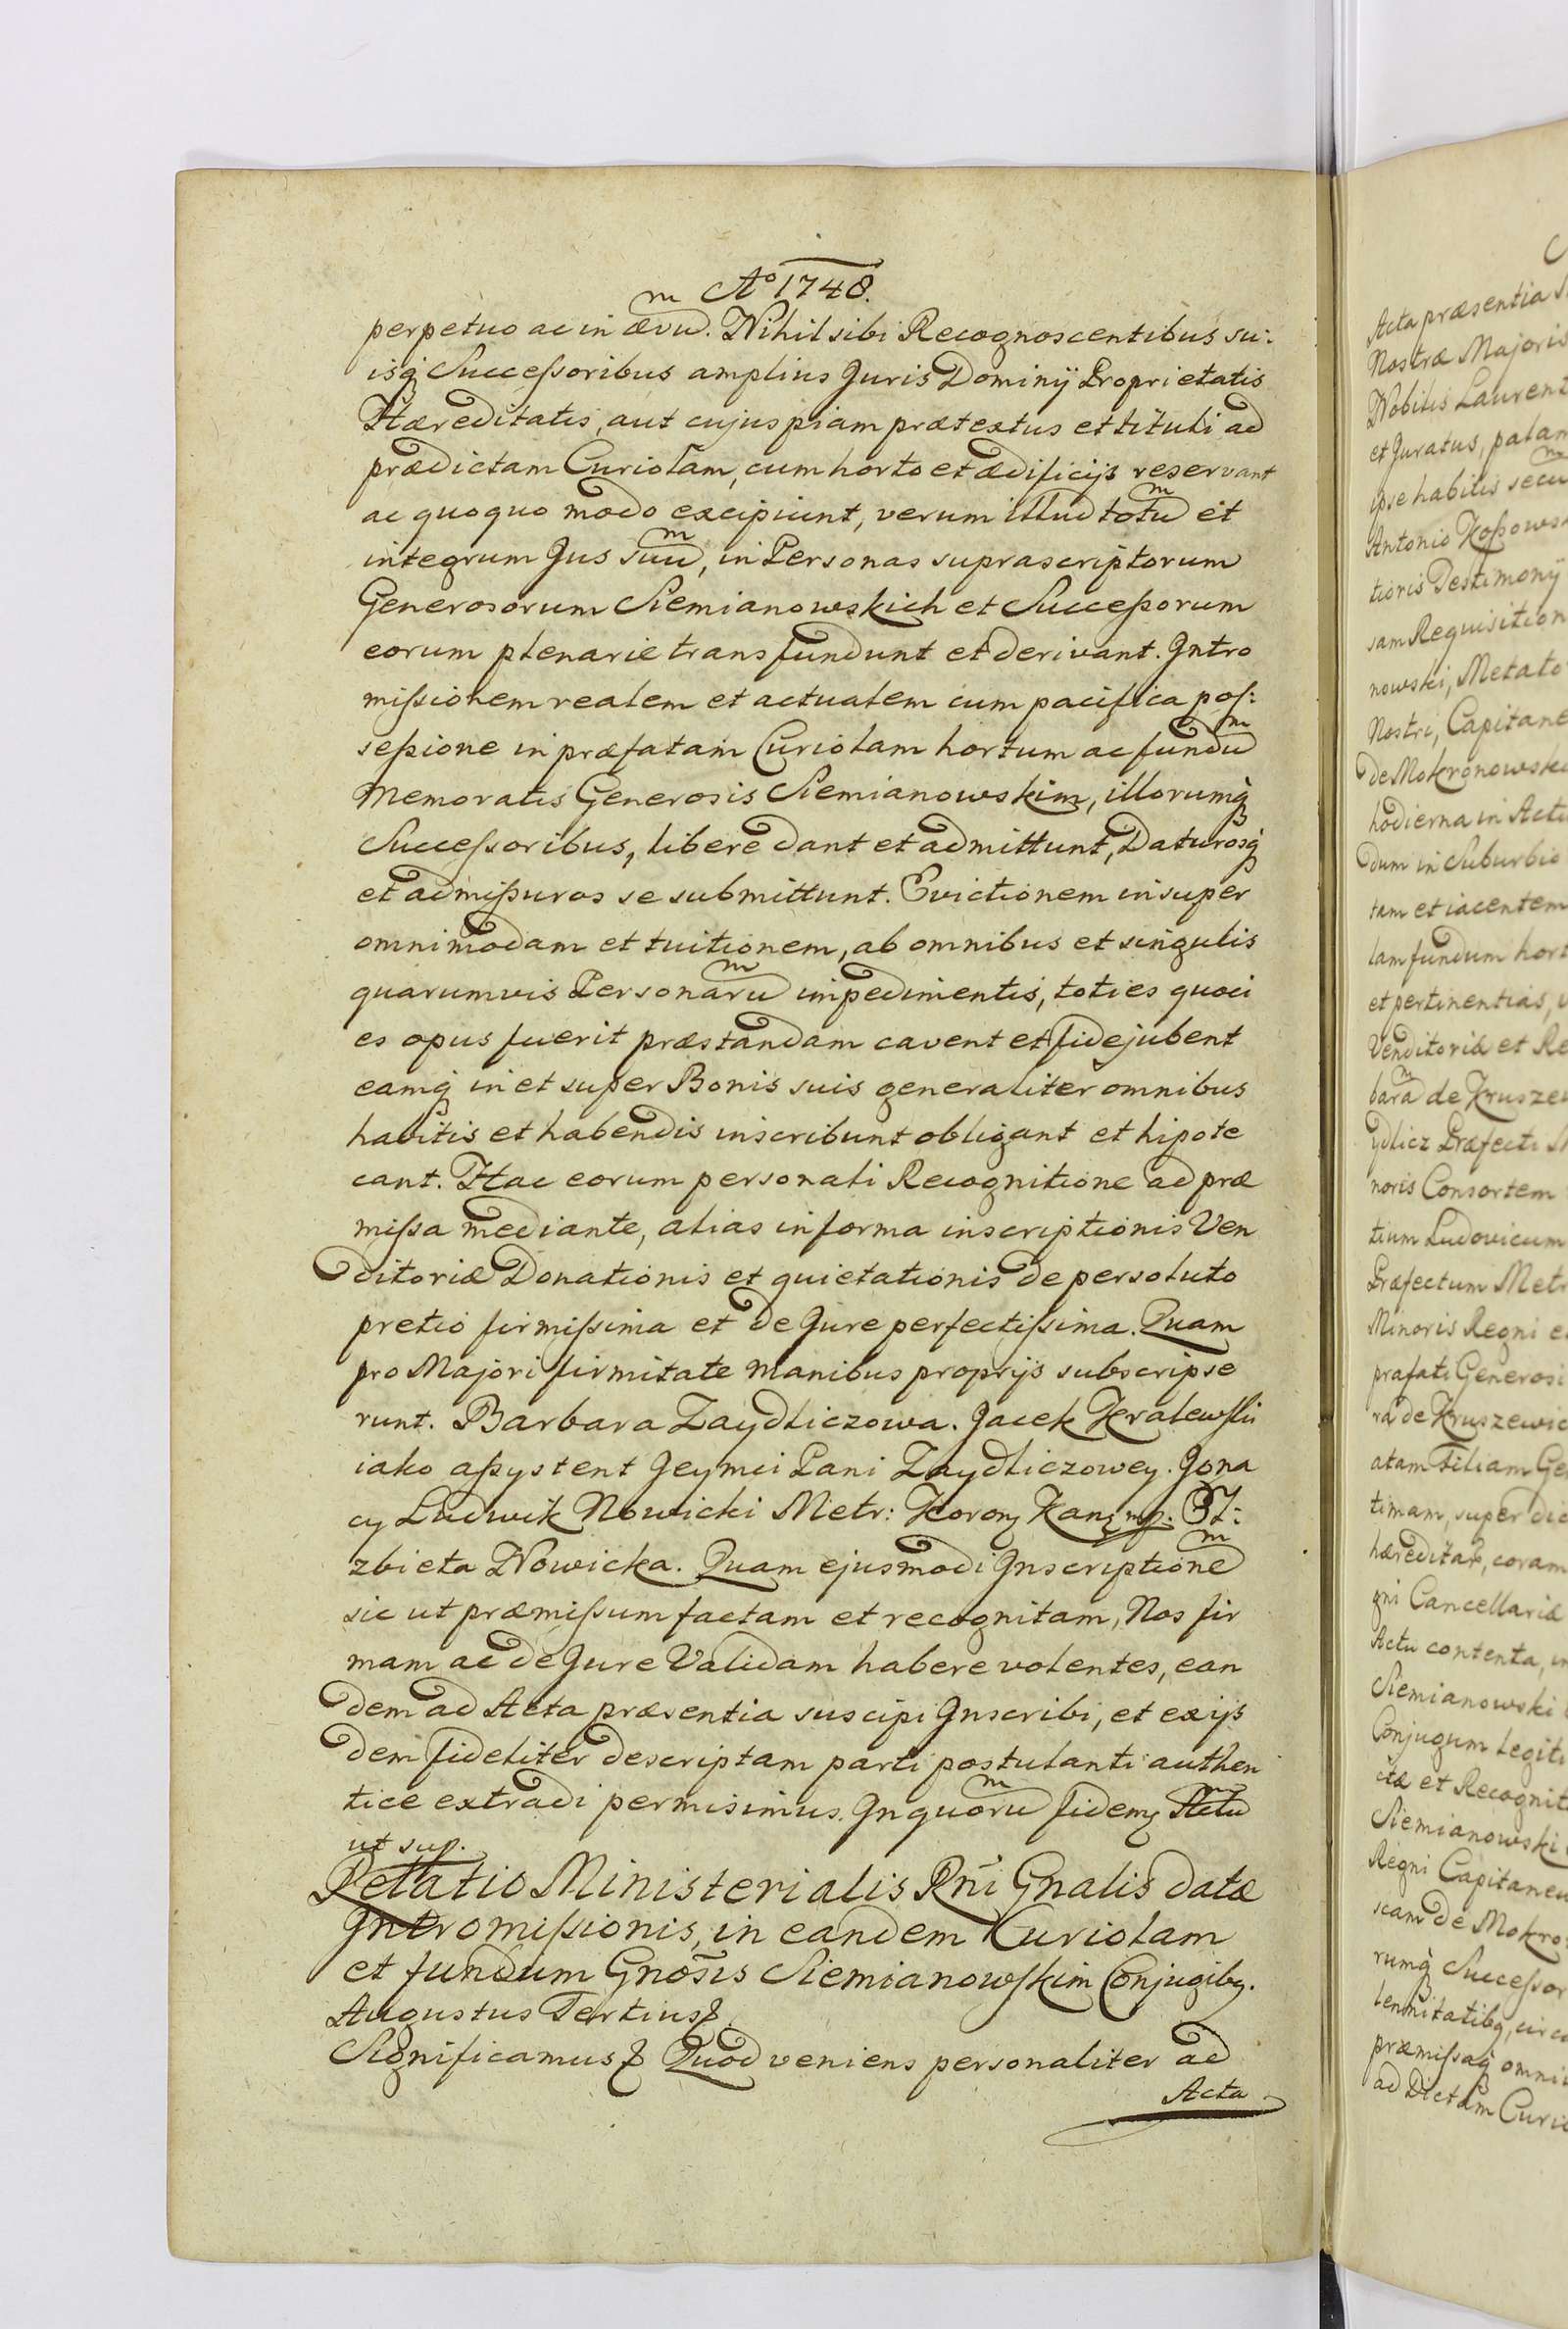 Aᵒ 1748.
perpetuo ac in ævuᵐ. Nihil sibi Recognoscentibus su:
isq̃ Succeſsoribus amplius Juris Dominij Proprietatis
Hæreditatis, aut cujuspiam prætextus et tituli ad
prædictam Curiolam, cum horto et ædificijs reservant
ac quoquo modo excipiunt, verum illud totuᵐ et
integrum Jus suuᵐ, in Personas suprascriptorum
Generosorum Siemianowskich et Succeſsorum
eorum plenarie transfundunt et derivant. Intro
miſsionem realem et actualem cum pacifica poſ:
seſsione in præfatam Curiolam hortum ac funduᵐ
Memoratis Generosis Siemianowskim, illorumq̃
Succeſsoribus, libere dant et admittunt, Daturosq̃
et admiſsuros se submittunt. Evictionem insuper
omnimodam et tuitionem, ab omnibus et singulis
quarumvis Personaruᵐ impedimentis, toties quoti
es opus fuerit præstandam cavent et fidejubent
eamq̃ in et super Bonis suis generaliter omnibus
habitis et habendis inscribunt obligant et hipote
cant. Hac eorum personali Recognitione ad præ
miſsa mediante, alias in forma inscriptionis Ven
ditoriæ Donationis et quietationis de persoluto
pretio firmiſsima et de Jure perfectiſsima. Quam
pro Majori firmitate manibus proprijs subscripse
runt. Barbara Zaydliczowa. Jacek Kralewſki
iako aſsystent Jeymci Pani Zaydliczowey. Igna
cy Ludwik Nowicki Metr: Korony Kanz mp. El:
zbieta Nowicka. Quam ejusmodi Inscriptioneᵐ
sic ut præmiſsum factam et recognitam, Nos fir
mam ac de Jure Validam habere volentes, ean
dem ad Acta præsentia suscipi Inscribi, et ex ijs
dem fideliter descriptam parti postulanti authen
tice extradi permisimus. In quoruᵐ fidem Actuᵐ
ut sup.
Relatio Ministerialis Rñi Gnalis datæ
Intromiſsionis, in eandem Curiolam
et fundum Gnõsis Siemianowſkim Conjugibq.
Augustus Tertius &
Significamus & Quod veniens personaliter ad
Acta
Acta præsentia
Nostræ Majoris
Nobilis Laurent
et Juratus, palam
ipse habitis secu
Antonio Koſsows
tioris Testimonij
sam Requisition
nowski, Metato
Nostri, Capitane
de Mokronowsk
hodierna in Actu
dum in Suburbio
tam et iacentem
lam fundum hort
et pertinentias,
Venditoriæ et Re
baraᵐ de Kruszew
ydlicz Præfecti
noris Consortem
tium Ludovicum
Præfectum Metr
Minoris Regni e
præfati Generosi
ra de Kruszewic
atam Filiam Ge
timam, super dic
hæreditate, coram
gni Cancellariæ
Actu contenta, in
Siemianowski
Conjugum legiti
ctæ et Recognit
Siemianowski
Regni Capitaneu
scam de Mokro
rumq̃ Succeſsor
lennitatibq, circ
præmiſsaq̃ omni
ad Dictam Curio